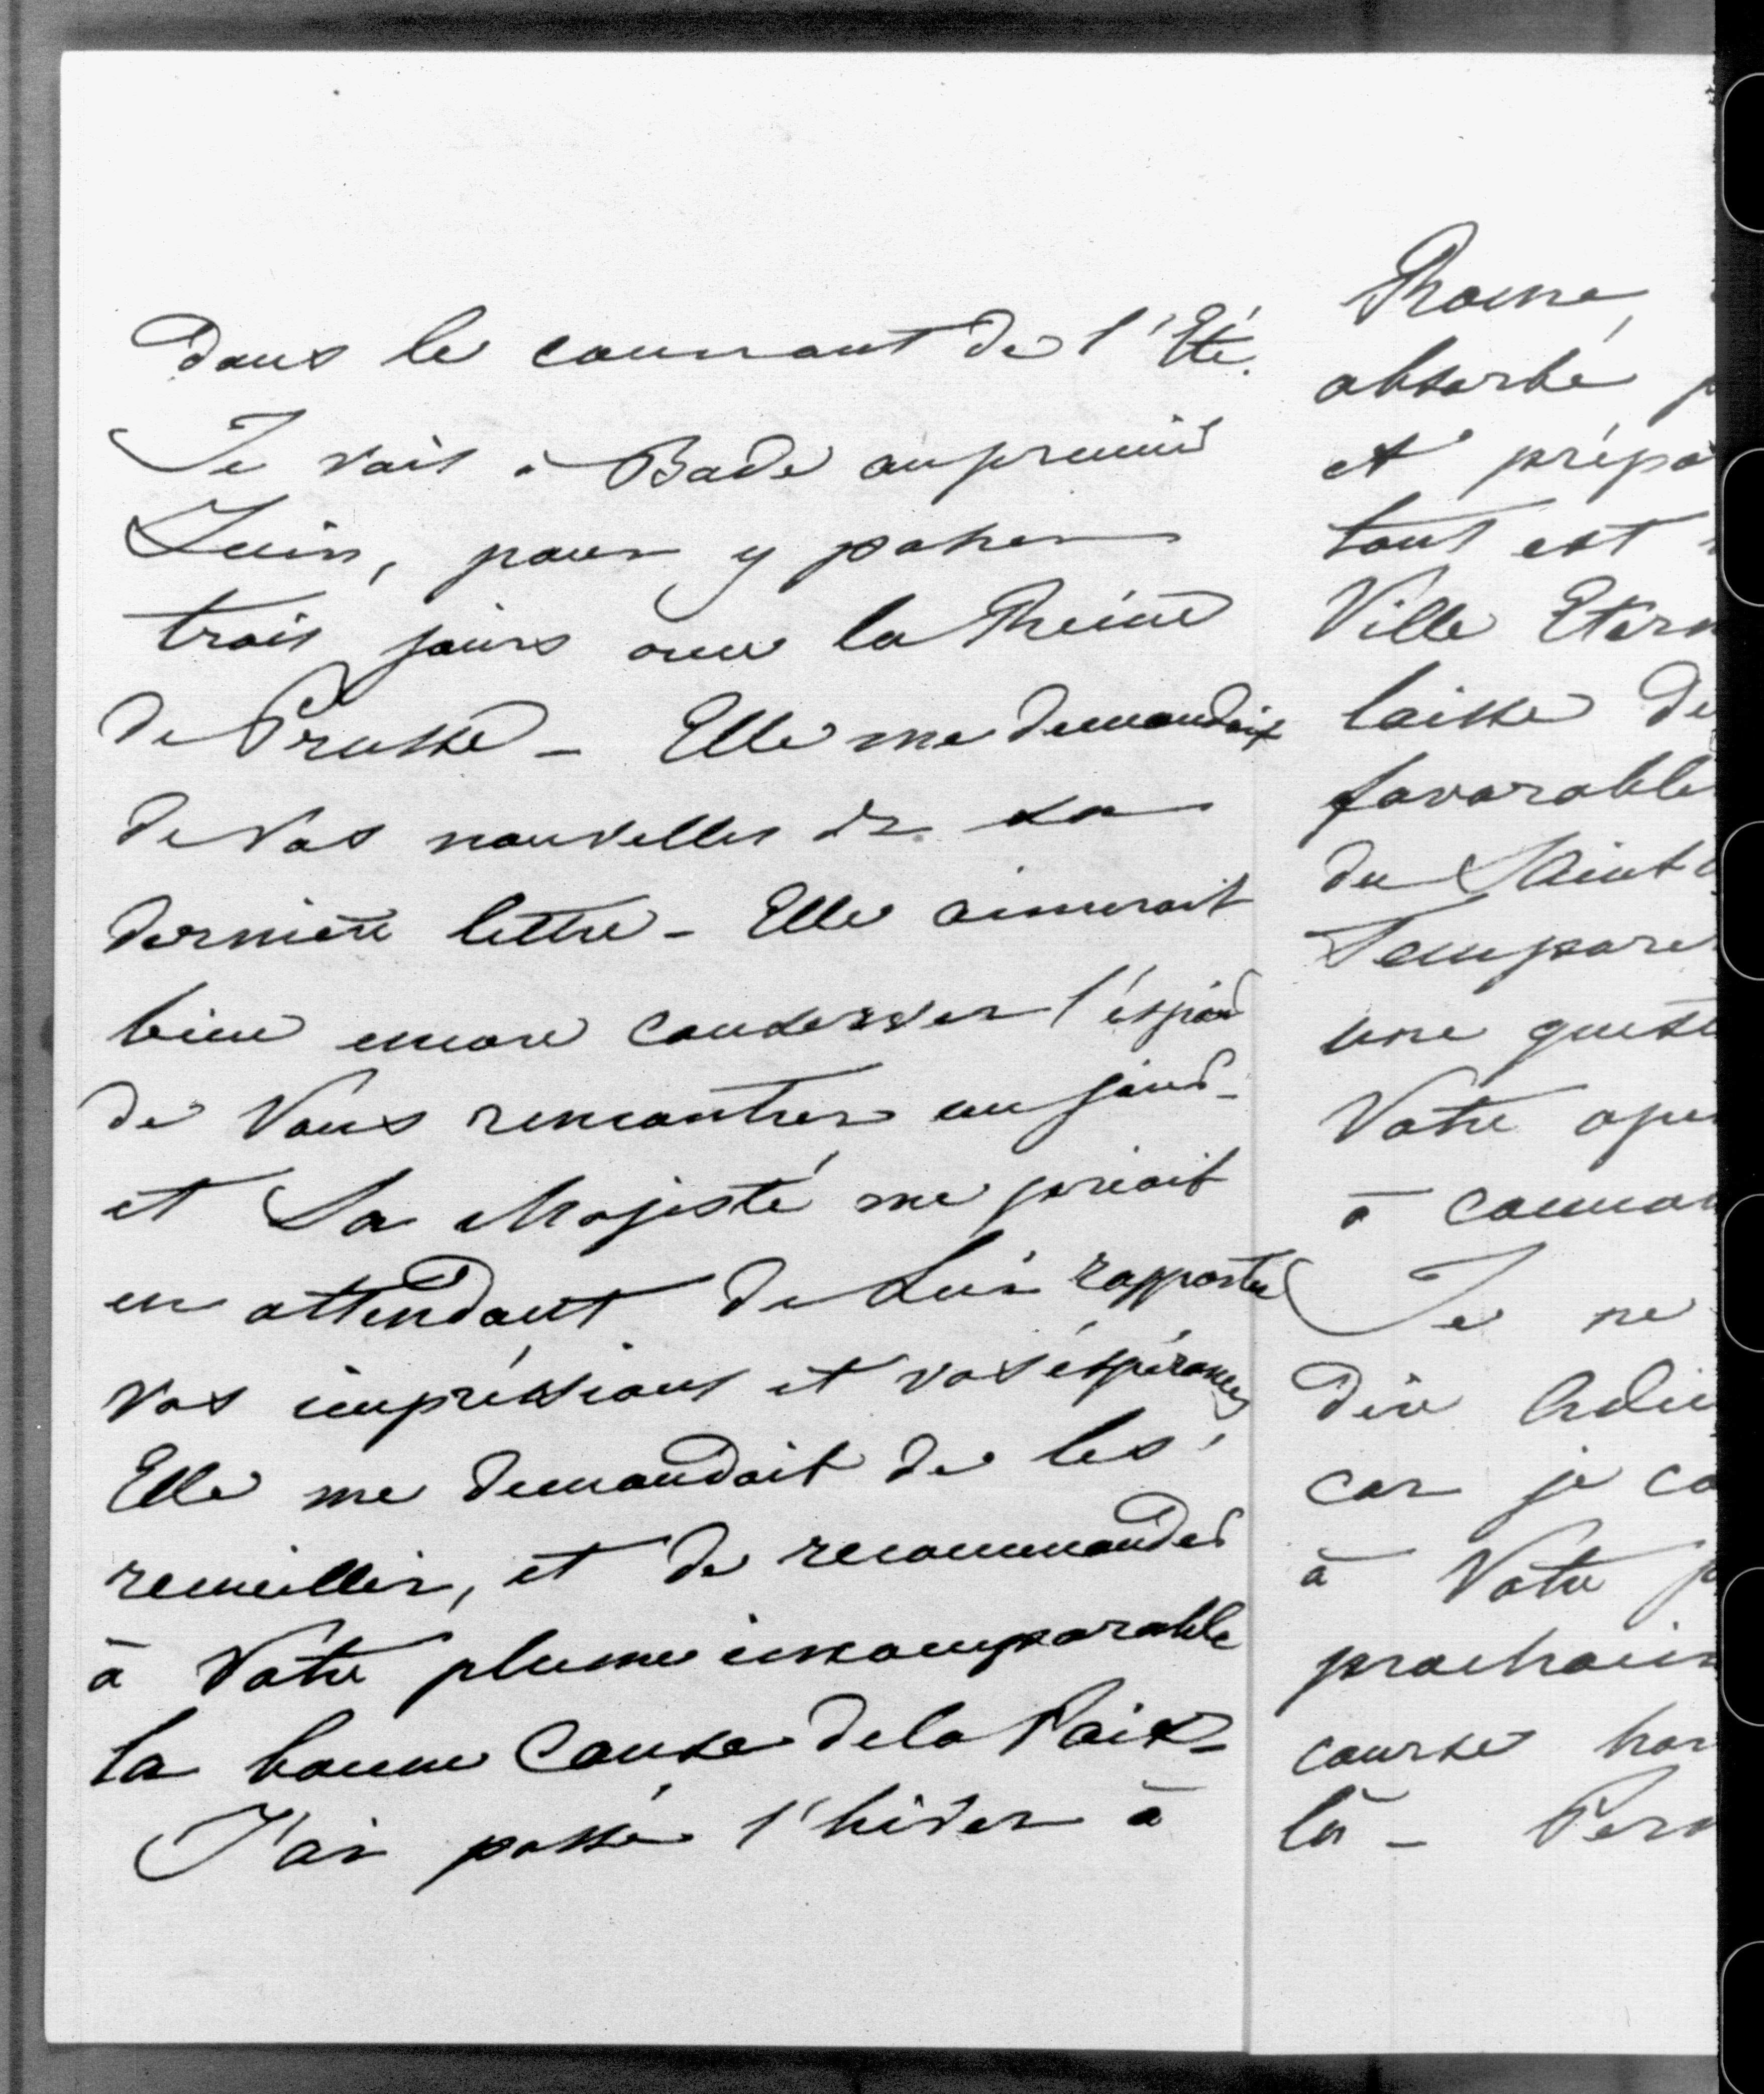 Dans le courant de l'Eté.
Je vais à Bade au premier
Juin, pour y passer
trois jours avec la Reine
de Prusse - Elle me demandait
de Vos nouvelles ds. sa
dernière lettre - Elle aimerait
bien encore conserver l'éspoir
de Vous rencontrer un jour -
et Sa Majesté me priait
en attendant de Lui rapporter
vos impressions et vos éspérances
Elle me demandait de les
recueillir, et de recommander
à Votre plume incomparable
la bonne Cause de la Paix -
J'ai passé l'hiver à
Rome,
absorbé p
et prépa
tout est
Ville Etern
laisse de
favorable
du Saint
Tempore
une questi
Votre opi
à connaî
Je ne
dire Adieu
car je co
à Votre p
prochain
course hor
là - Perm